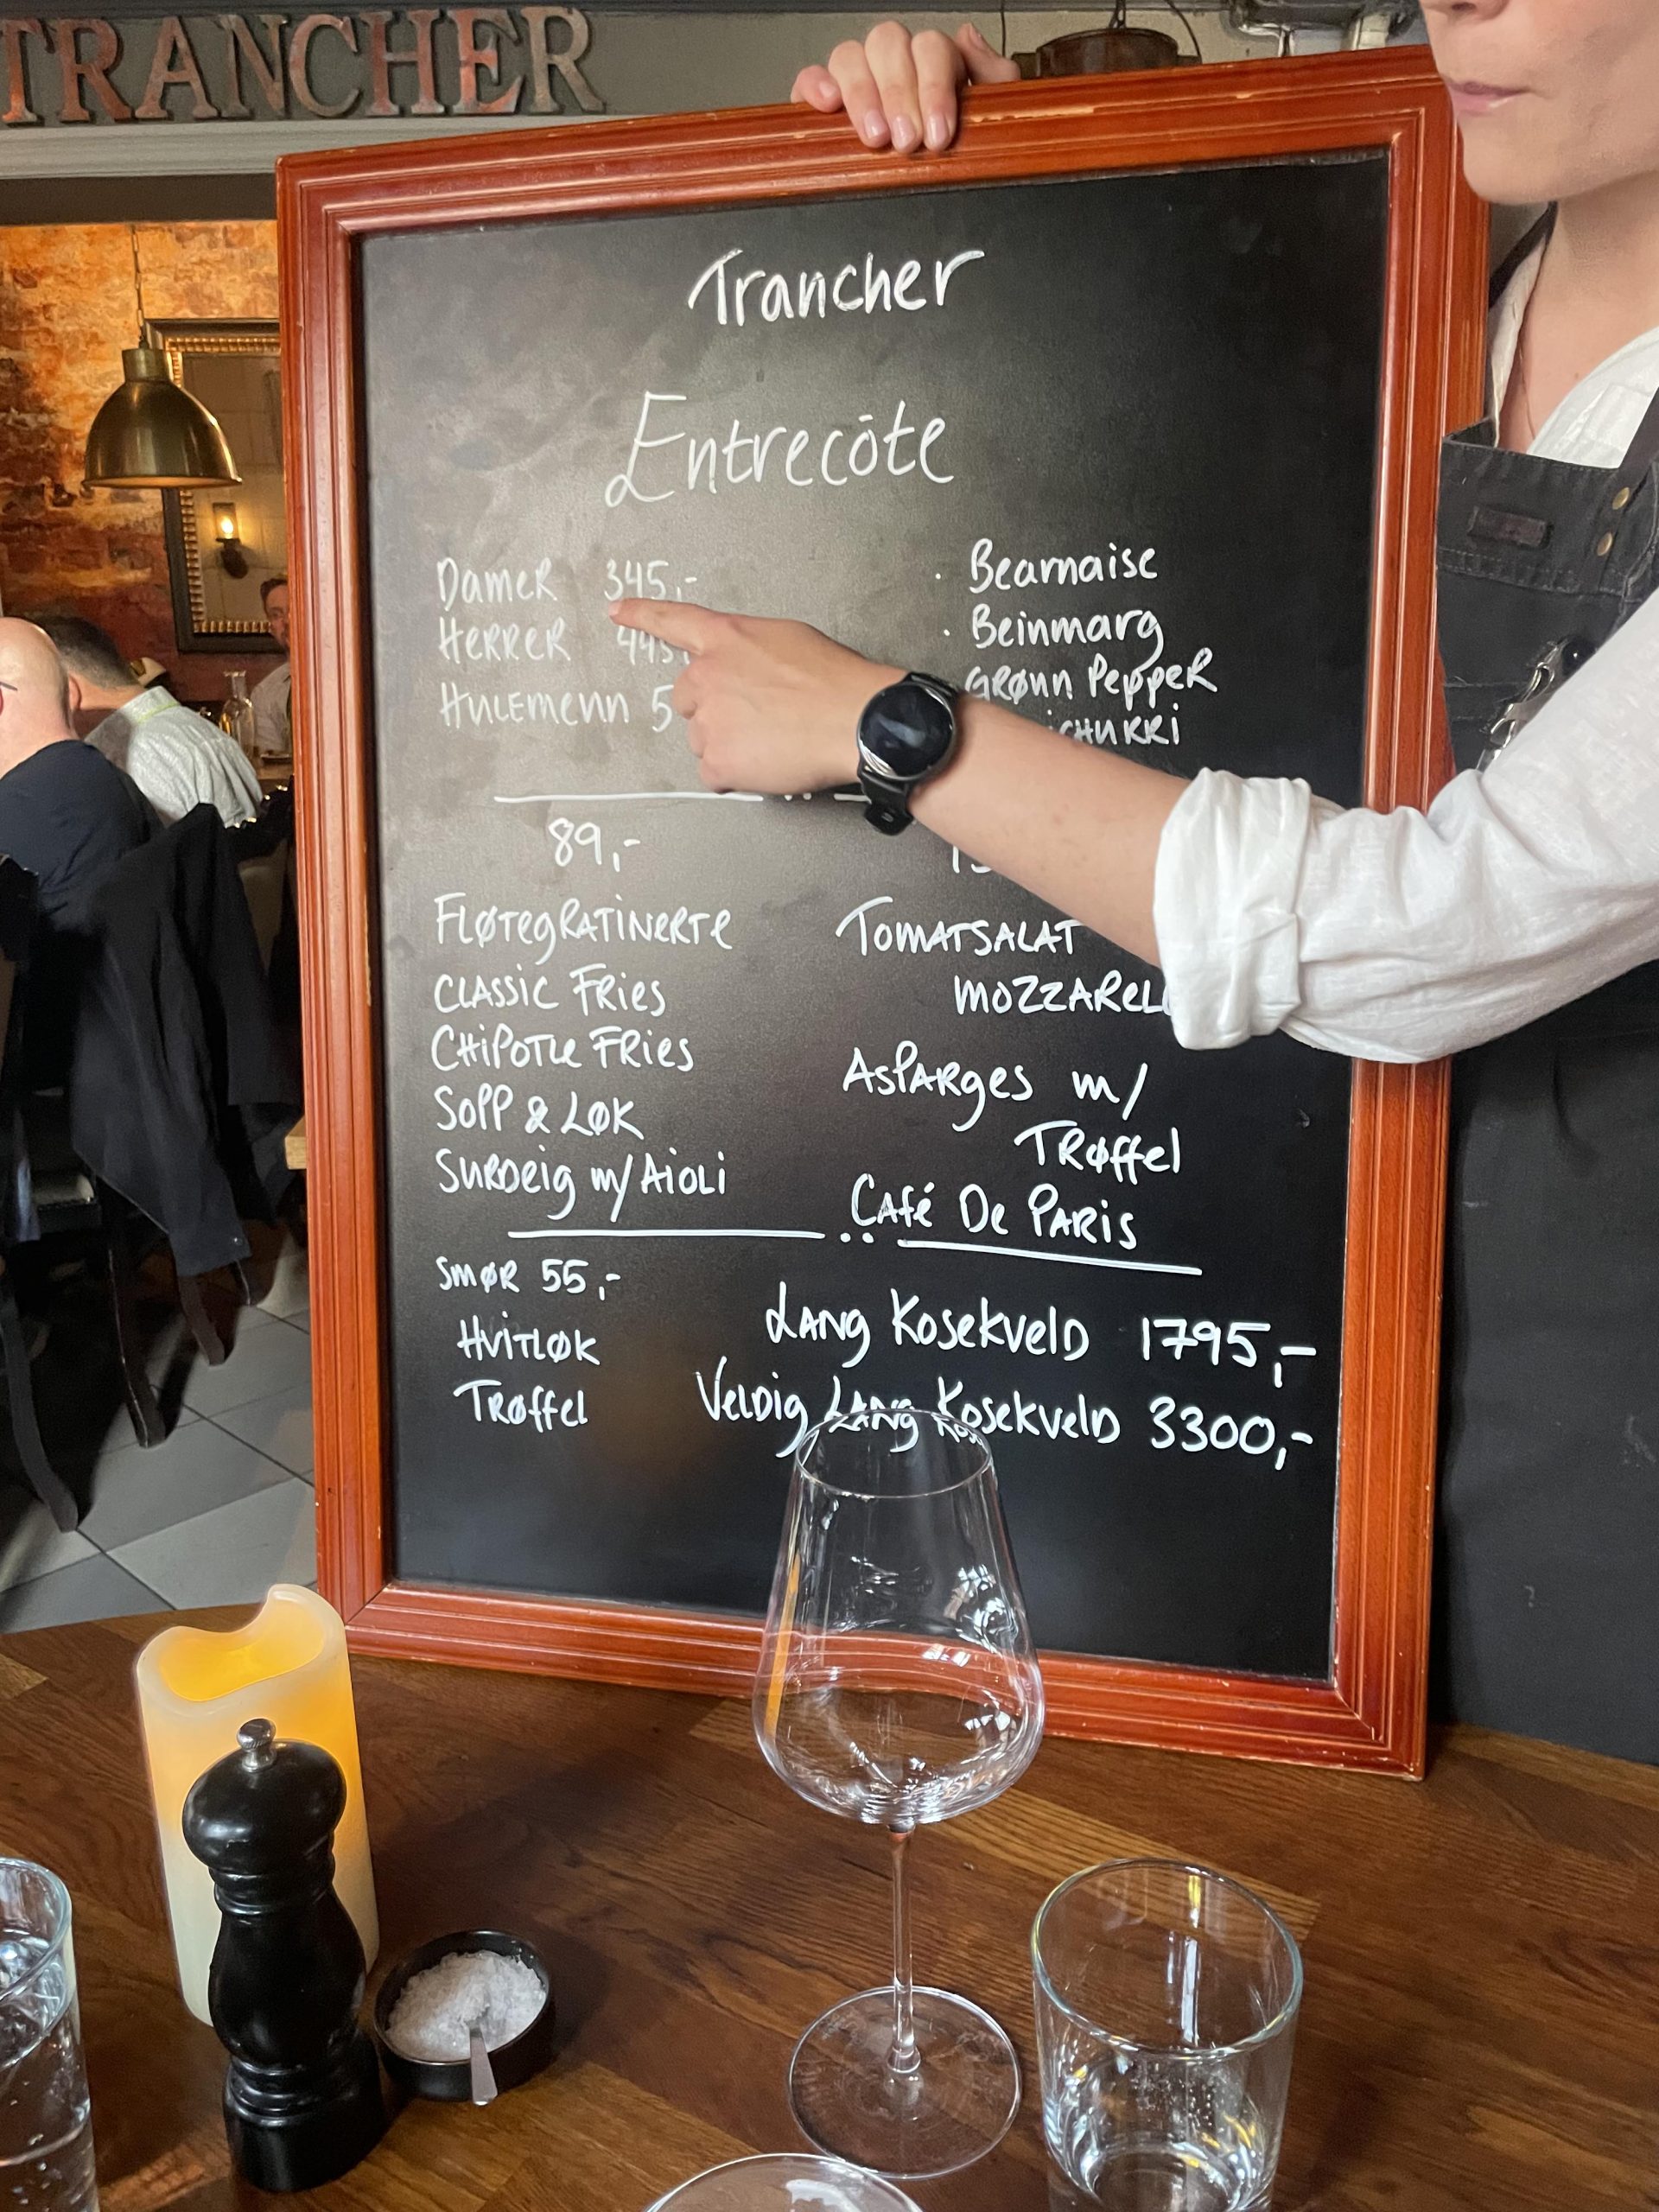 TRANCHER
Trancher
Entrecôte
Damer 345,-
Herrer 445,
Hulemenn 5
· Bearnaise
· Beinmarg
Grønn Pepper
89,-
Fløtegratinerte
Classic Fries
Chipotle Fries
Sopp & Løk
Surdeig m/Aioli
Tomatsalat
Asparges m/
Trøffel
Café De Paris
Smør 55,-
Hvitløk
Trøffel
Lang Kosekveld 1795,-
Veldig Lang Kosekveld 3300,-